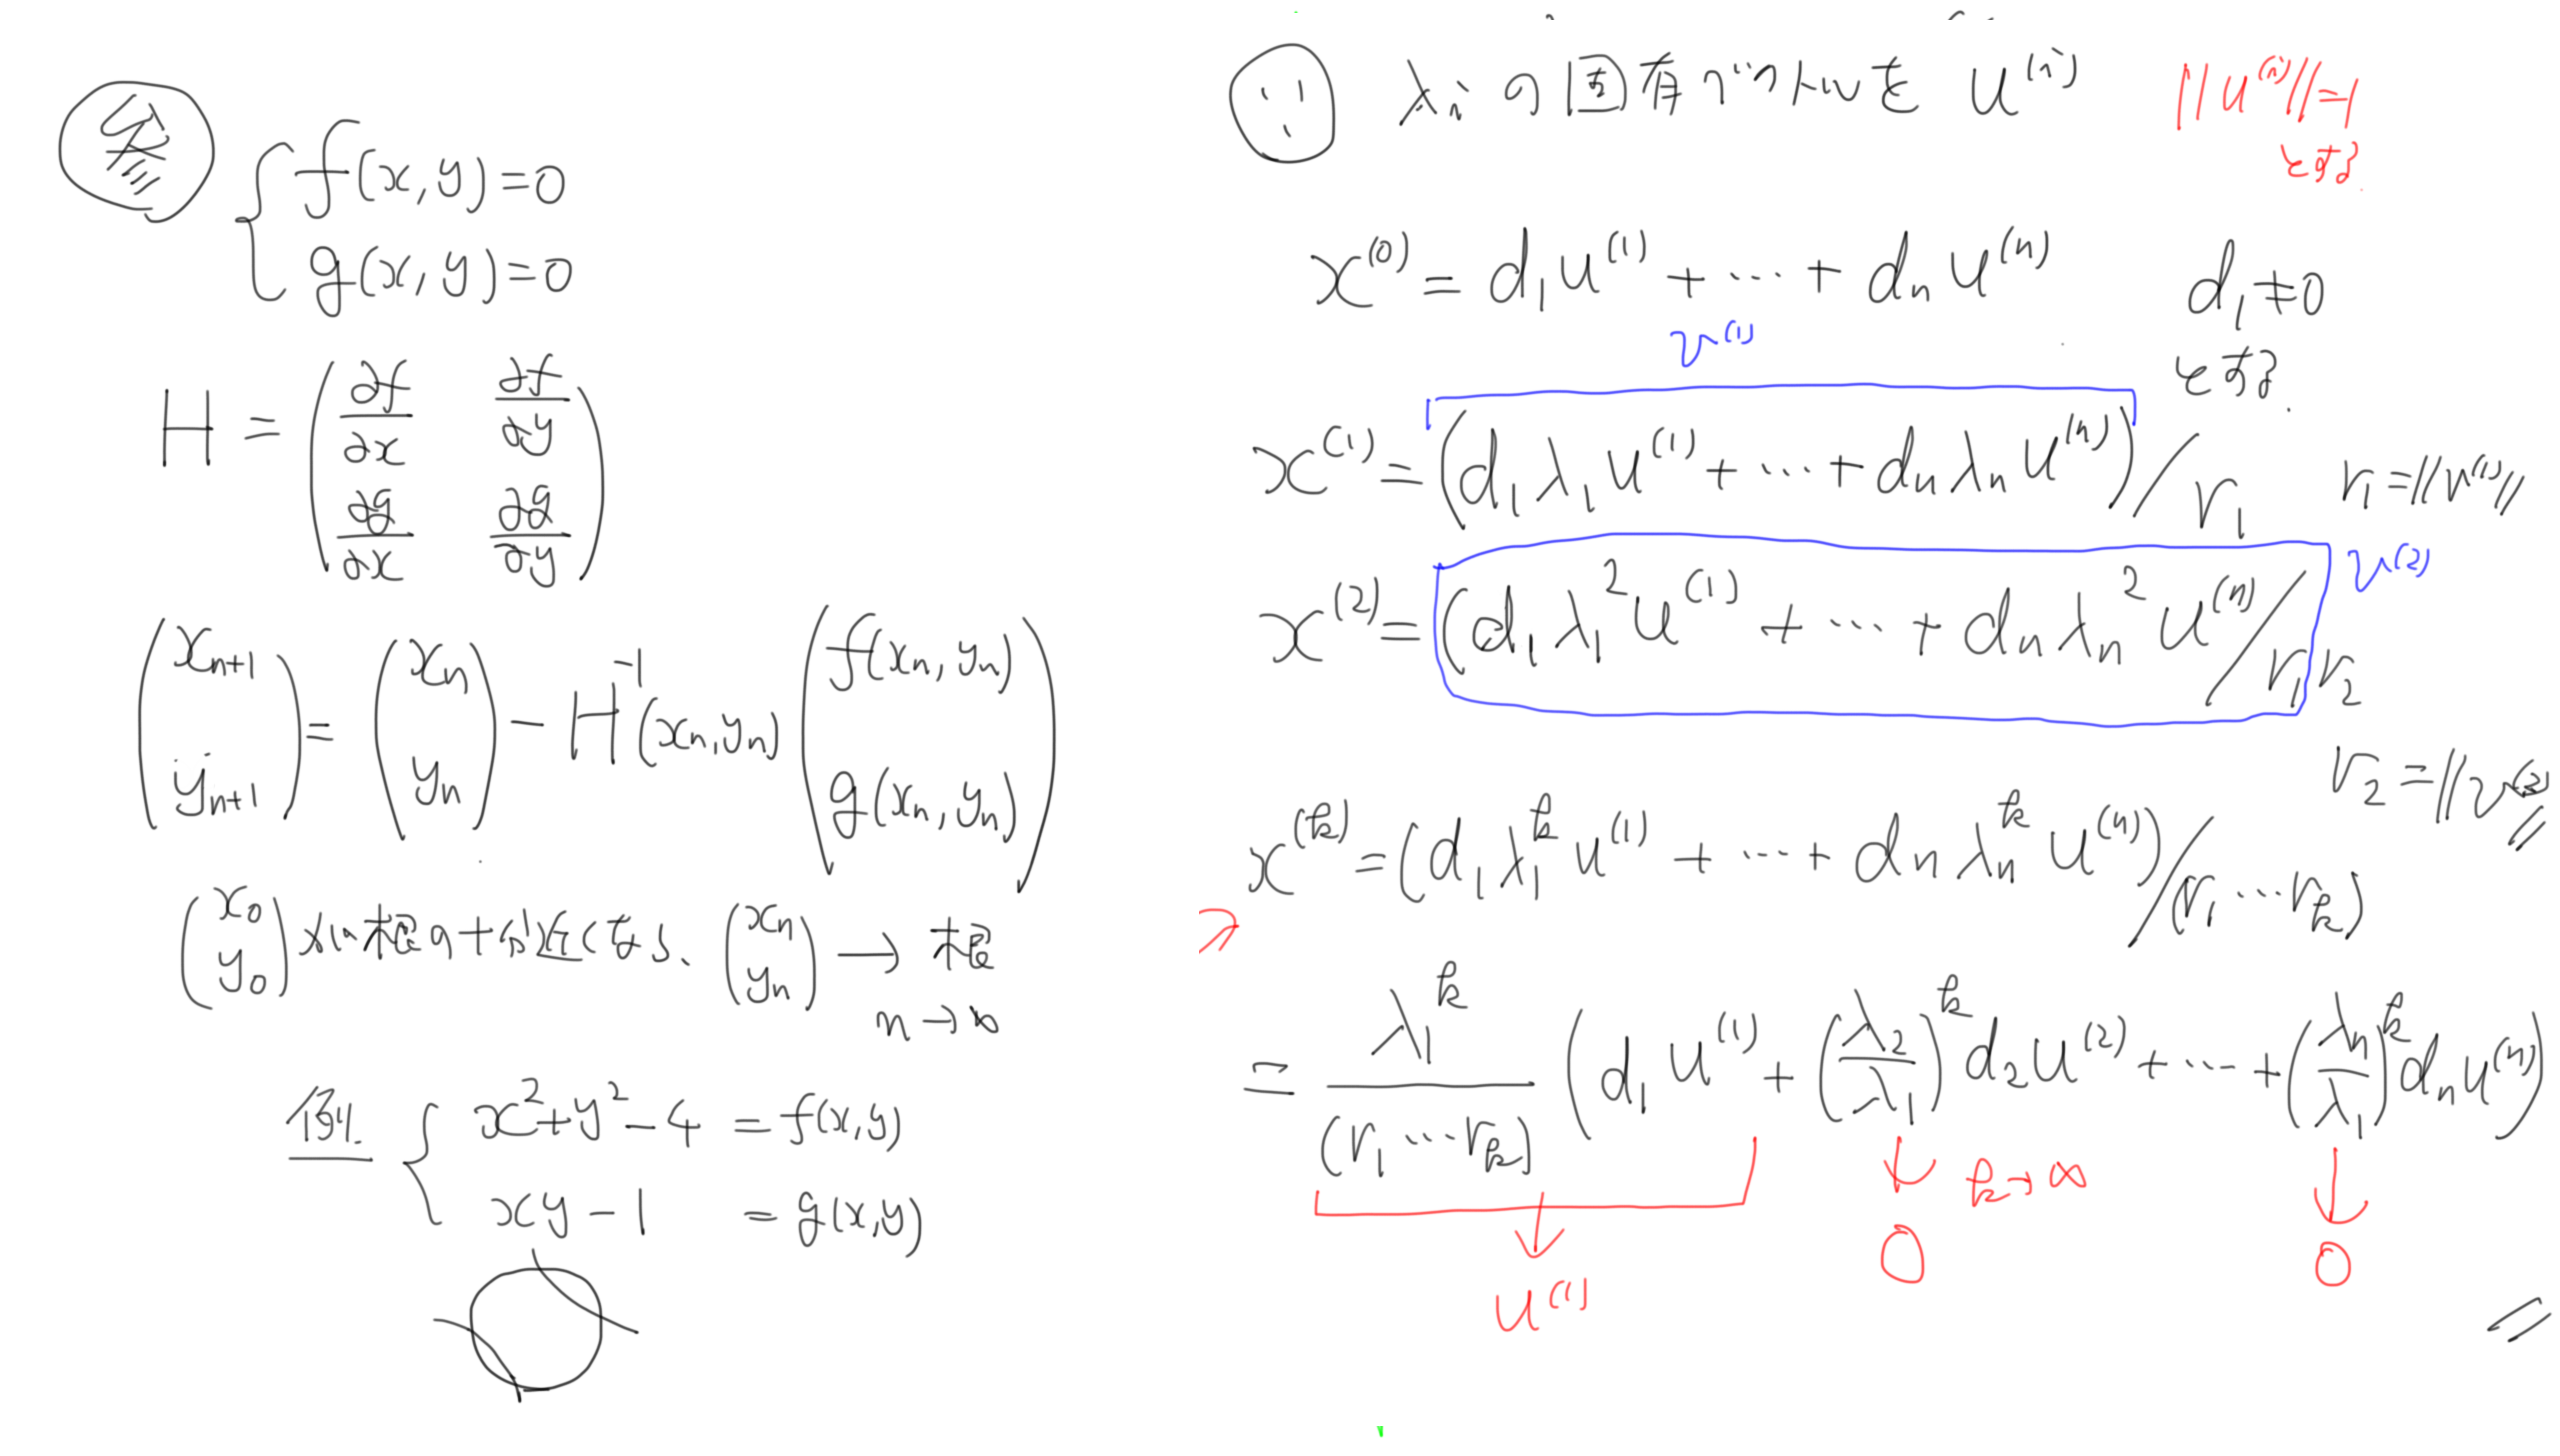 参
f(x,y)=0
g(x,y)=0
H = ( ∂f/∂x ∂f/∂y
∂g/∂x ∂g/∂y )
( x_{n+1} y_{n+1} ) = ( x_n y_n ) - H^{-1}(x_n,y_n) ( f(x_n,y_n) g(x_n,y_n) )
( x_0 y_0 ) が根の十分近くなら、 ( x_n y_n ) → 根
n→∞
例 { x^2+y^2-4 = f(x,y)
xy-1 = g(x,y)
∵ λ_i の固有ベクトルを u^{(i)} ||u^{(i)}||=1
とする.
x^{(0)} = d_1 u^{(1)} + … + d_n u^{(n)} d_1≠0
とする.
v^{(1)}
x^{(1)} = (d_1 λ_1 u^{(1)} + … + d_n λ_n u^{(n)}) / r_1 r_1 = ||v^{(1)}||
x^{(2)} = (d_1 λ_1^2 u^{(1)} + … + d_n λ_n^2 u^{(n)} / r_1 r_2 v^{(2)}
r_2 = ||v^{(2)}||
x^{(k)} = (d_1 λ_1^k u^{(1)} + … + d_n λ_n^k u^{(n)}) / (r_1 … r_k)
= λ_1^k / (r_1 … r_k) ( d_1 u^{(1)} + (λ_2/λ_1)^k d_2 u^{(2)} + … + (λ_n/λ_1)^k d_n u^{(n)} )
↓ k→∞ ↓
↓ 0 0
u^{(1)}
//